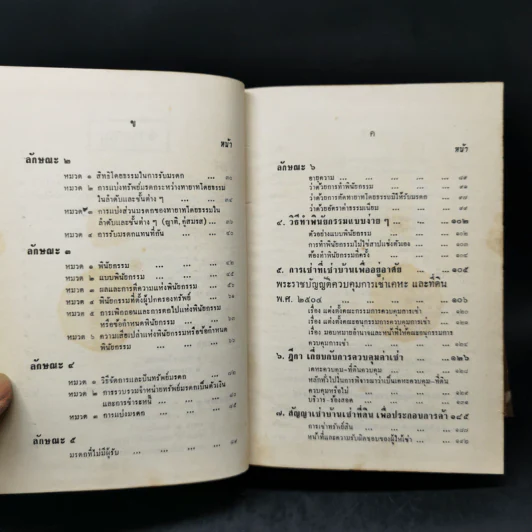 ข
หน้า
ลักษณะ ๒
หมวด ๑ สิทธิโดยธรรมในการรับมรดก ...
หมวด ๒ การแบ่งทรัพย์มรดกระหว่างทายาทโดยธรรม
ในลำดับและชั้นต่าง ๆ ...
หมวด ๓ การแบ่งส่วนมรดกของทายาทโดยธรรมใน
ลำดับและชั้นต่าง ๆ (ญาติ, คู่สมรส) ...
หมวด ๔ การรับมรดกแทนที่กัน ...
ลักษณะ ๓
หมวด ๑ พินัยกรรม ... ...
หมวด ๒ แบบพินัยกรรม ... ...
หมวด ๓ ผลและการตีความแห่งพินัยกรรม ...
หมวด ๔ พินัยกรรมที่ตั้งผู้ปกครองทรัพย์ ...
หมวด ๕ การเพิกถอนและการตกไปแห่งพินัยกรรม
หรือข้อกำหนดพินัยกรรม ... ...
หมวด ๖ ความเสียเปล่าแห่งพินัยกรรมหรือข้อกำหนด
พินัยกรรม ... ... ...
ลักษณะ ๔
หมวด ๑ วิธีจัดการและปันทรัพย์มรดก ...
หมวด ๒ การรวบรวมจำหน่ายทรัพย์มรดกเป็นตัวเงิน
และการชำระหนี้ ... ...
หมวด ๓ การแบ่งมรดก ... ...
ลักษณะ ๕
มรดกที่ไม่มีผู้รับ ... ... ...
ค
หน้า
ลักษณะ ๖
อายุความ ... ... ... ...
ว่าด้วยการทำพินัยกรรม ... ...
ว่าด้วยการตัดทายาทโดยธรรมมิให้รับมรดก ...
ว่าด้วยอัตราค่าธรรมเนียม ... ...
๔. วิธีทำพินัยกรรมแบบง่าย ๆ ... ๑๐๒
ตัวอย่างแบบพินัยกรรม ... ...
การทำพินัยกรรมไม่ใช่สาปแช่งตัวเอง ...
ต้องทำพินัยกรรมกี่ครั้ง ... ...
๕. การเช่าที่เช่าบ้านเพื่ออยู่อาศัย ๑๐๕
พระราชบัญญัติควบคุมการเช่าเคหะ และที่ดิน
พ.ศ. ๒๕๐๔ ... ... ... ๑๐๖
เรื่อง แต่งตั้งคณะกรรมการควบคุมการเช่า ...
เรื่อง แต่งตั้งคณะอนุกรรมการควบคุมการเช่า ...
เรื่อง มอบหมายอำนาจและหน้าที่ให้คณะอนุกรรมการ
ควบคุมการเช่า ... ...
๖. ฎีกา เกี่ยวกับการควบคุมค่าเช่า ... ๑๒๖
เคหะควบคุม-ที่ดินควบคุม ... ...
หลักทั่วไปในการพิจารณาว่าเป็นเคหะควบคุม-ที่ดิน
ควบคุมหรือไม่ ... ...
บริวาร-ร้องสอด ... ... ...
๗. สัญญาเช่าบ้านเช่าที่ดิน เพื่อประกอบการค้า ๑๔๕
การเช่าทรัพย์สิน ... ... ...
หน้าที่และความรับผิดชอบของผู้ให้เช่า ...